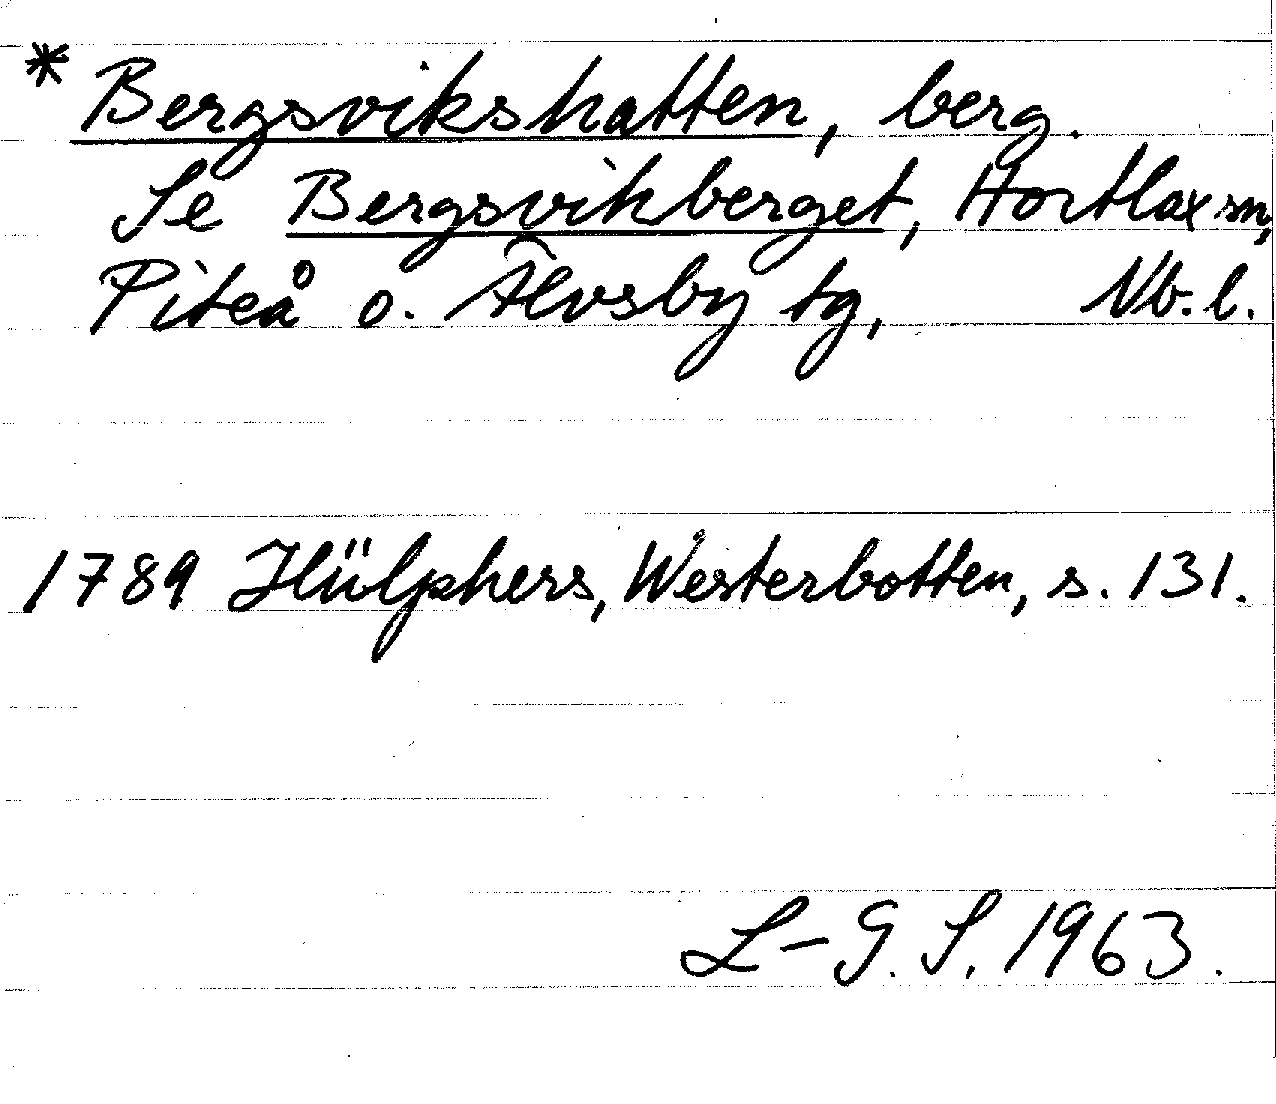 * Bergsvikshatten, berg.
Se Bergsvikberget, Hortlax sn,
Piteå o. Älvsby tg, Nb. l.
1789 Hülphers, Westerbotten, s. 131.
L-G. S. 1963.